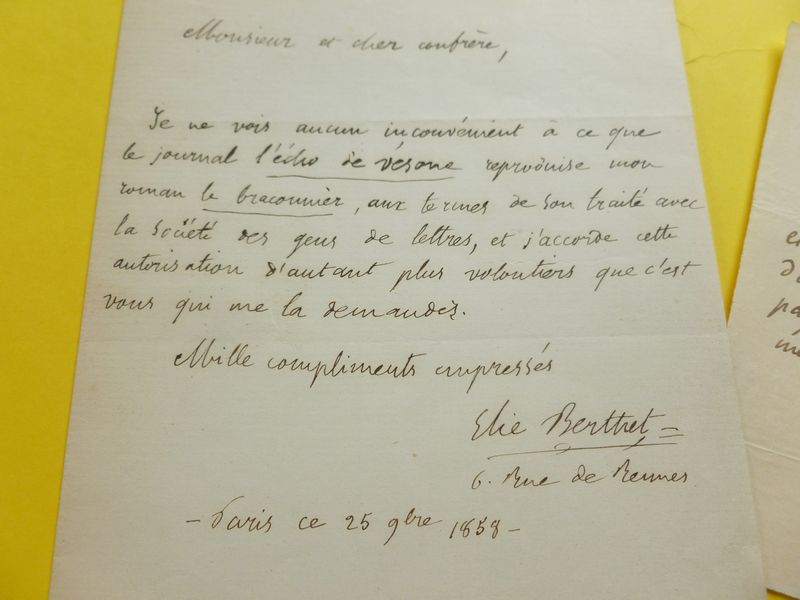 Monsieur et cher confrère,
Je ne vois aucun inconvénient à ce que
le journal l'écho de vésone reproduise mon
roman le braconnier, aux termes de son traité avec
la société des gens de lettres, et j'accorde cette
autorisation d'autant plus volontiers que c'est
vous qui me la demandez.
Mille compliments empressés
Elie Berthet
6. Rue de Rennes
- Paris ce 25 9bre 1858 -